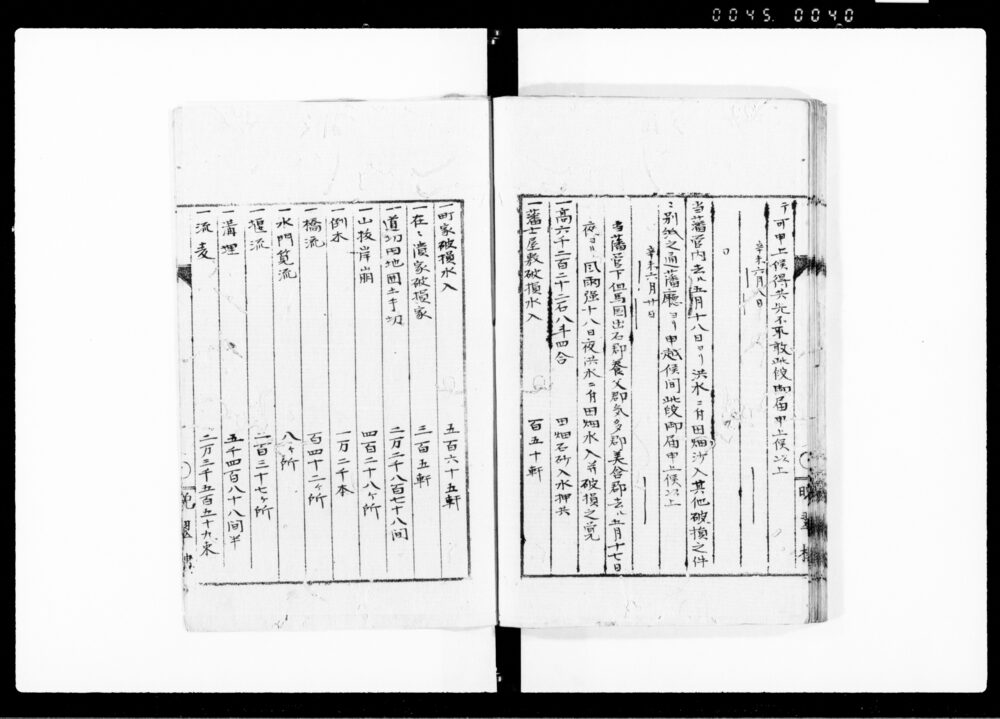 0045. 0040
テ可申上候得共先不取敢此段御届申上候以上
辛未六月八日
当藩管内去ル五月十八日ヨリ洪水ニ付田畑沙入其他破損之件
ニ別紙之通藩廳ヨリ申越候間此段御届申上候以上
辛未六月廿日
当藩管下但馬国出石郡養父郡気多郡美含郡去ル五月十七日
夜ヨリ風雨强十八日夜洪水ニ付田畑水入并破損之覚
一高六千二百二十二石八斗四合 田畑石砂入水押共
一藩士屋敷破損水入 百五十軒
一町家破損水入 五百六十五軒
一在々潰家破損家 三百五軒
一道切田地囲土手切 二万二千八百七十八间
一山抜岸崩 四百二十八ヶ所
一倒木 一万二千本
一橋流 百四十二ヶ所
一水門筧流 八ヶ所
一堰流 二百三十七ヶ所
一溝埋 五千四百八十八间半
一流麦 二万三千五百五十九束
晩翠楼